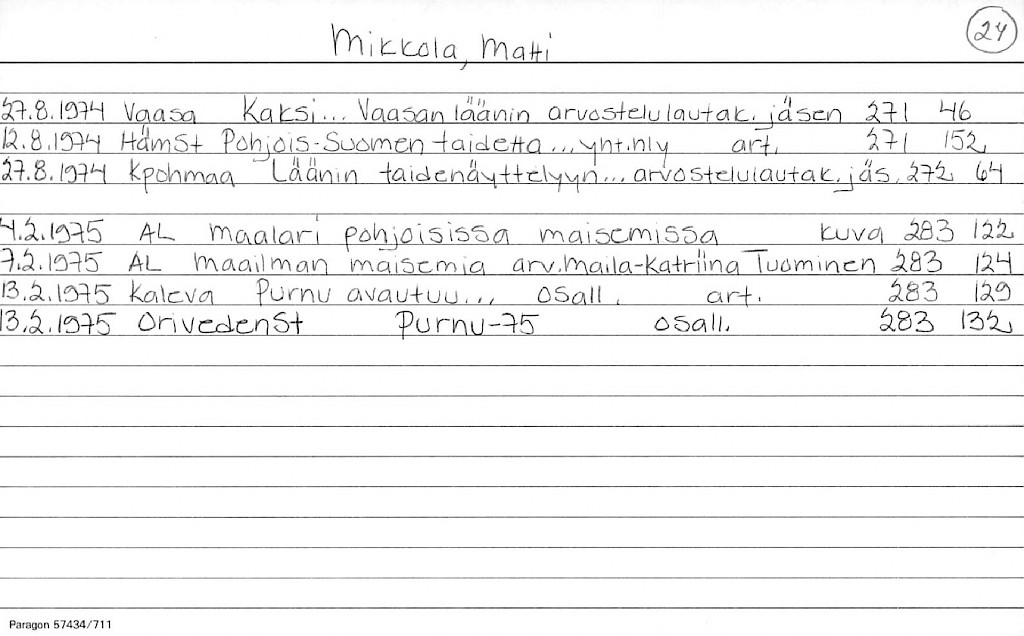 24
Mikkola, Matti
27.8.1974 Vaasa Kaksi... Vaasan läänin arvostelulautak. jäsen 271 46
12.8.1974 HämSt Pohjois-Suomen taidetta... yht.nly art. 271 152
27.8.1974 Kpohmaa Läänin taidenäyttelyyn... arvostelulautak. jäs. 272 64
4.2.1975 AL Maalari pohjoisissa maisemissa kuva 283 122
7.2.1975 AL Maailman maisemia arv. Maila-Katriina Tuominen 283 124
13.2.1975 Kaleva Purnu avautuu... osall. art. 283 129
13.2.1975 OrivedenSt Purnu-75 osall. 283 132
Paragon 57434/711